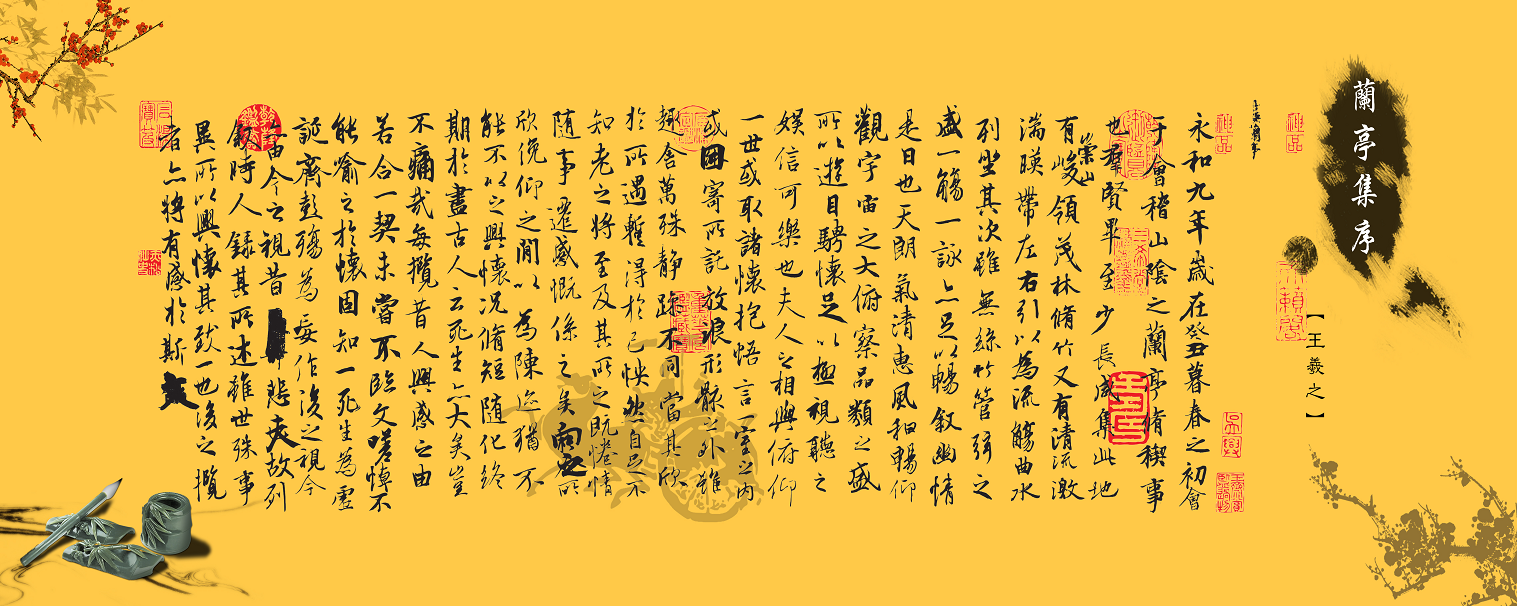 蘭亭集序
【王羲之】
神品
神品
永和九年歲在癸丑暮春之初會
于會稽山陰之蘭亭脩稧事
也羣賢畢至少長咸集此地
有崇山峻領茂林脩竹又有清流激
湍暎帶左右引以為流觴曲水
列坐其次雖無絲竹管弦之
盛一觴一詠亦足以暢敘幽情
是日也天朗氣清惠風和暢仰
觀宇宙之大俯察品類之盛
所以遊目騁懷足以極視聽之
娛信可樂也夫人之相與俯仰
一世或取諸懷抱悟言一室之內
或因寄所託放浪形骸之外雖
趣舍萬殊静躁不同當其欣
於所遇暫得於己怏然自足不
知老之將至及其所之既惓情
隨事遷感慨係之矣向之所
欣俛仰之間以為陳迹猶不
能不以之興懷況脩短隨化終
期於盡古人云死生亦大矣豈
不痛哉每攬昔人興感之由
若合一契未嘗不臨文嗟悼不
能喻之於懷固知一死生為虛
誕齊彭殤為妄作後之視今
亦由今之視昔悲夫故列
敘時人錄其所述雖世殊事
異所以興懷其致一也後之攬
者亦將有感於斯文